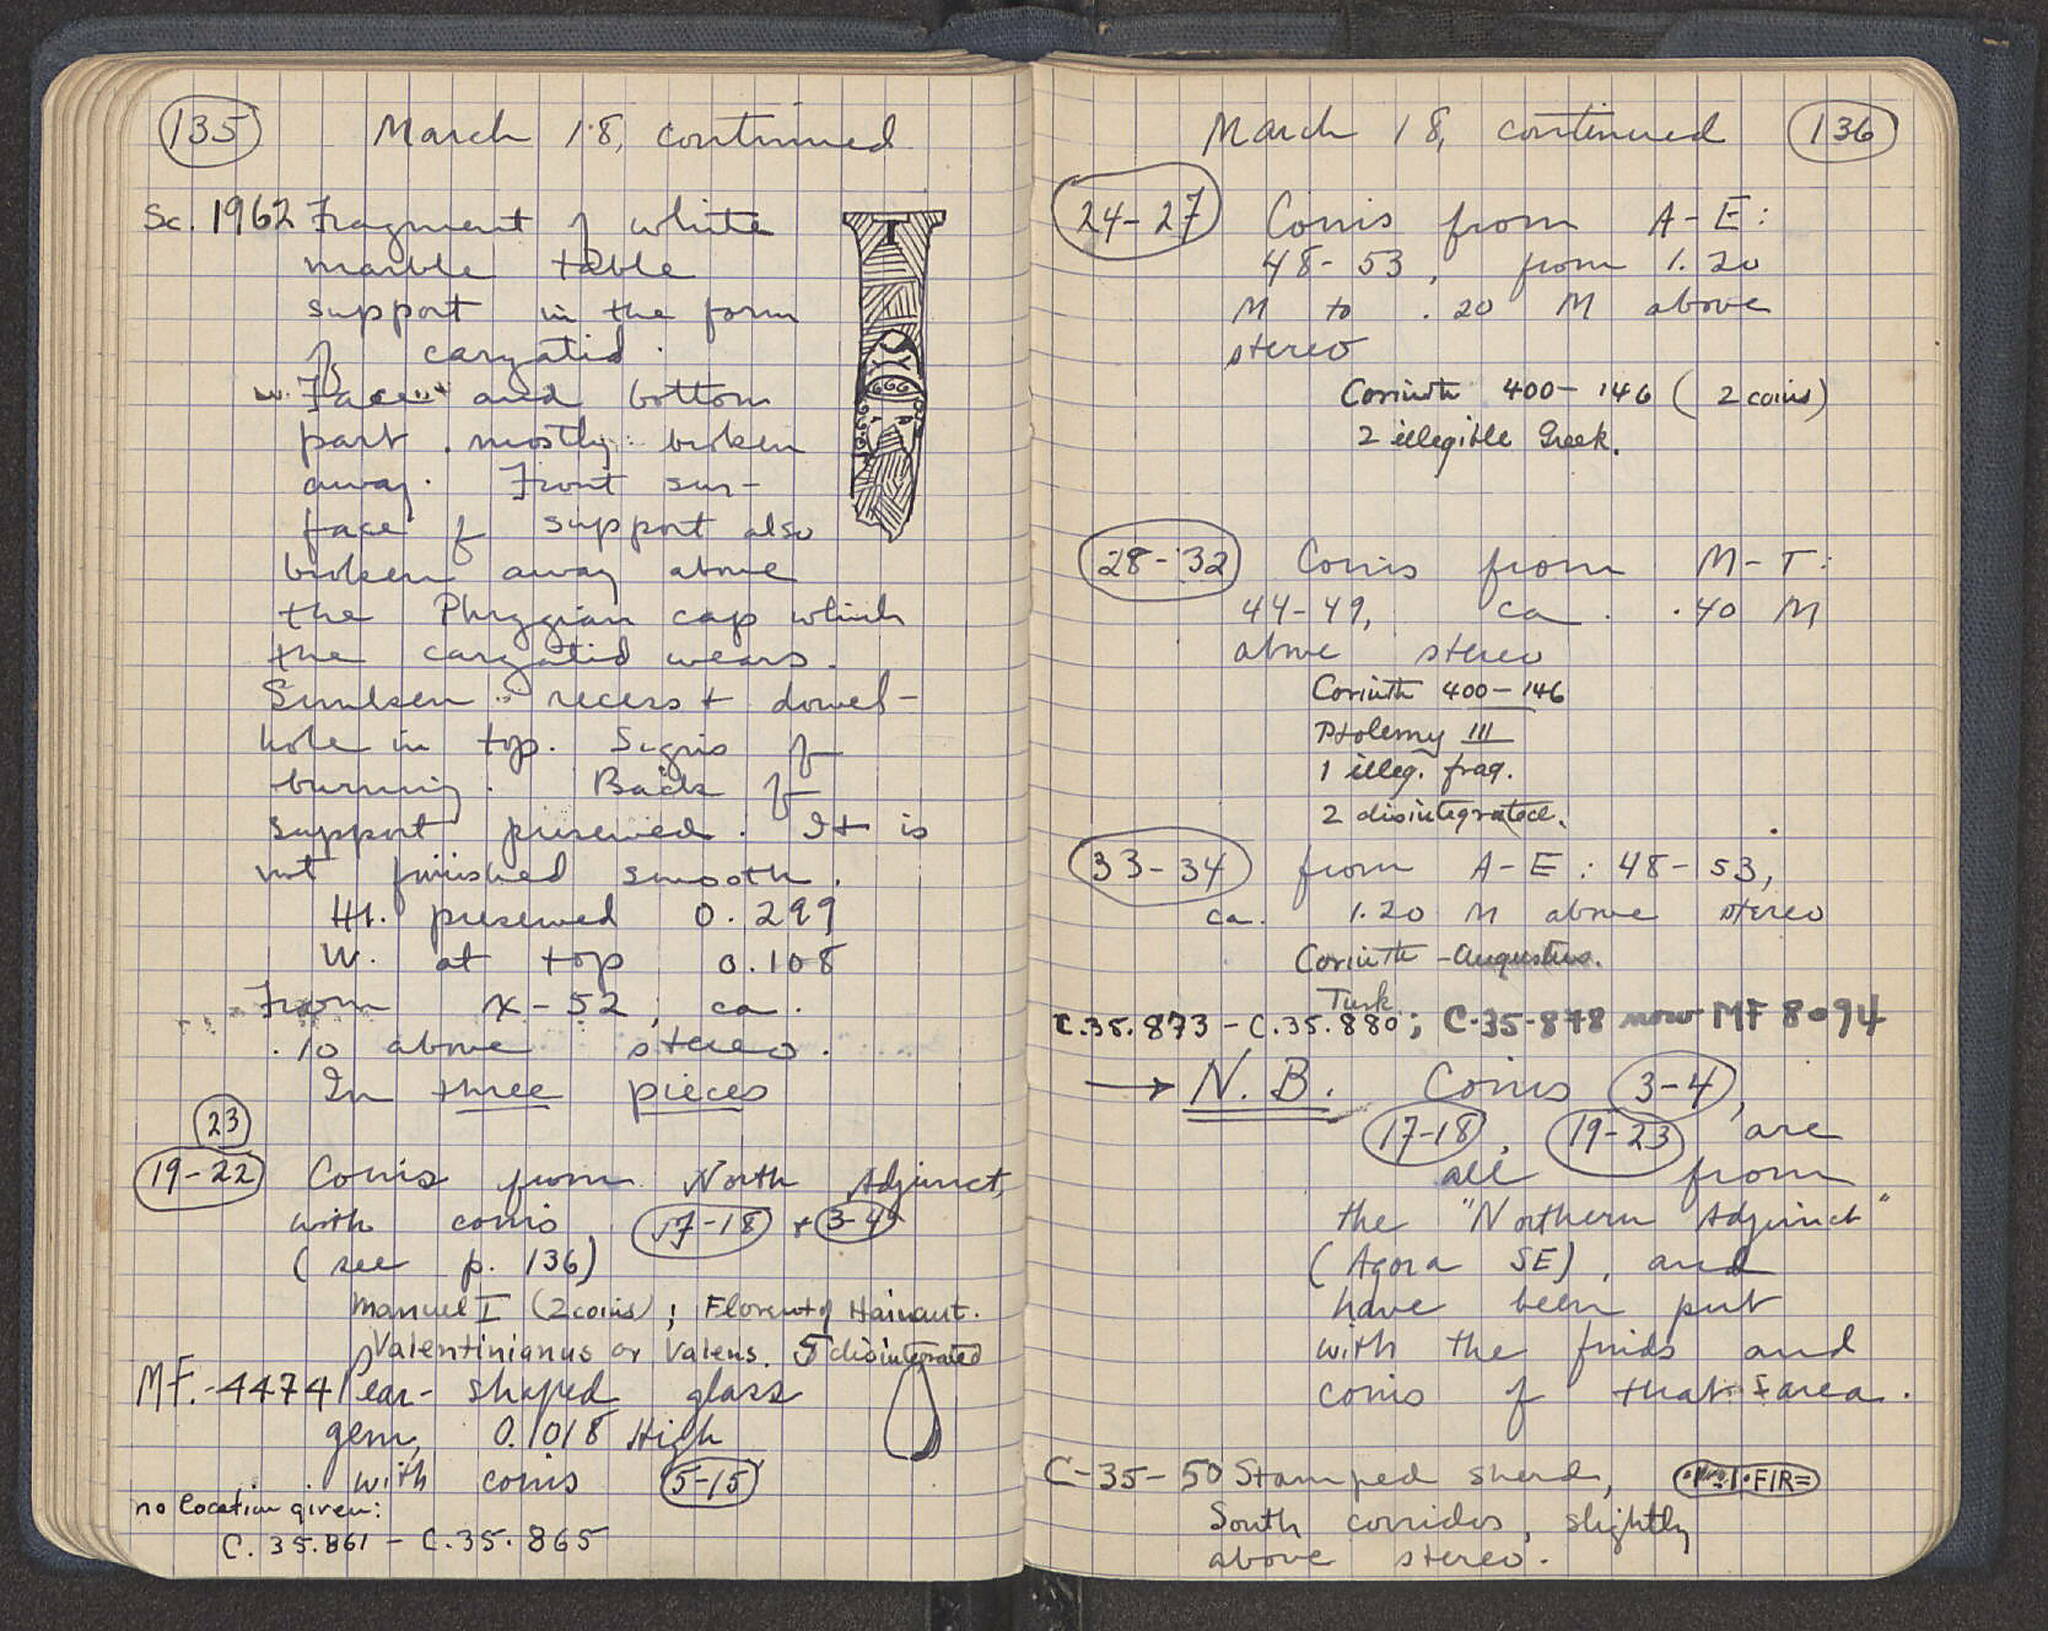 135
March 18, continued
Sc. 1962 Fragment of white
marble table
support in the form
of caryatid.
Face and bottom
part mostly broken
away. Front sur-
face of support also
broken away above
the Phrygian cap which
the caryatid wears.
Sunken recess + dowel-
hole in top. Signs of
burning. Back of
support preserved. It is
not finished smooth.
Ht. preserved 0.299
W. at top 0.108
From X-52, ca.
.10 above stereo.
In three pieces
23
19-22 Coins from North Adjunct,
with coins 17-18 + 3-4
(see p. 136)
Manuel I (2 coins); Florent of Hainaut.
Valentinianus or Valens. 5 disintegrated
MF.-4474 Pear-shaped glass
gem, 0.1018 High
with coins 5-15
no location given:
C.35.861 - C.35.865
March 18, continued
136
24-27 Coins from A-E:
48-53, from 1.20
M to .20 M above
stereo
Corinth 400-146 (2 coins)
2 illegible Greek.
28-32 Coins from M-T:
44-49, ca. .40 M
above stereo
Corinth 400-146
Ptolemy III
1 illeg. frag.
2 disintegrated.
33-34 from A-E: 48-53,
ca. 1.20 M above stereo
Corinth - Augustus.
Turk
C.35.873 - C.35.880; C-35-878 now MF 8094
→ N.B. Coins 3-4,
17-18, 19-23 are
all from
the "Northern Adjunct"
(Agora SE), and
have been put
with the finds and
coins of that area.
C-35-50 Stamped sherd,
South corridor, slightly
above stereo.